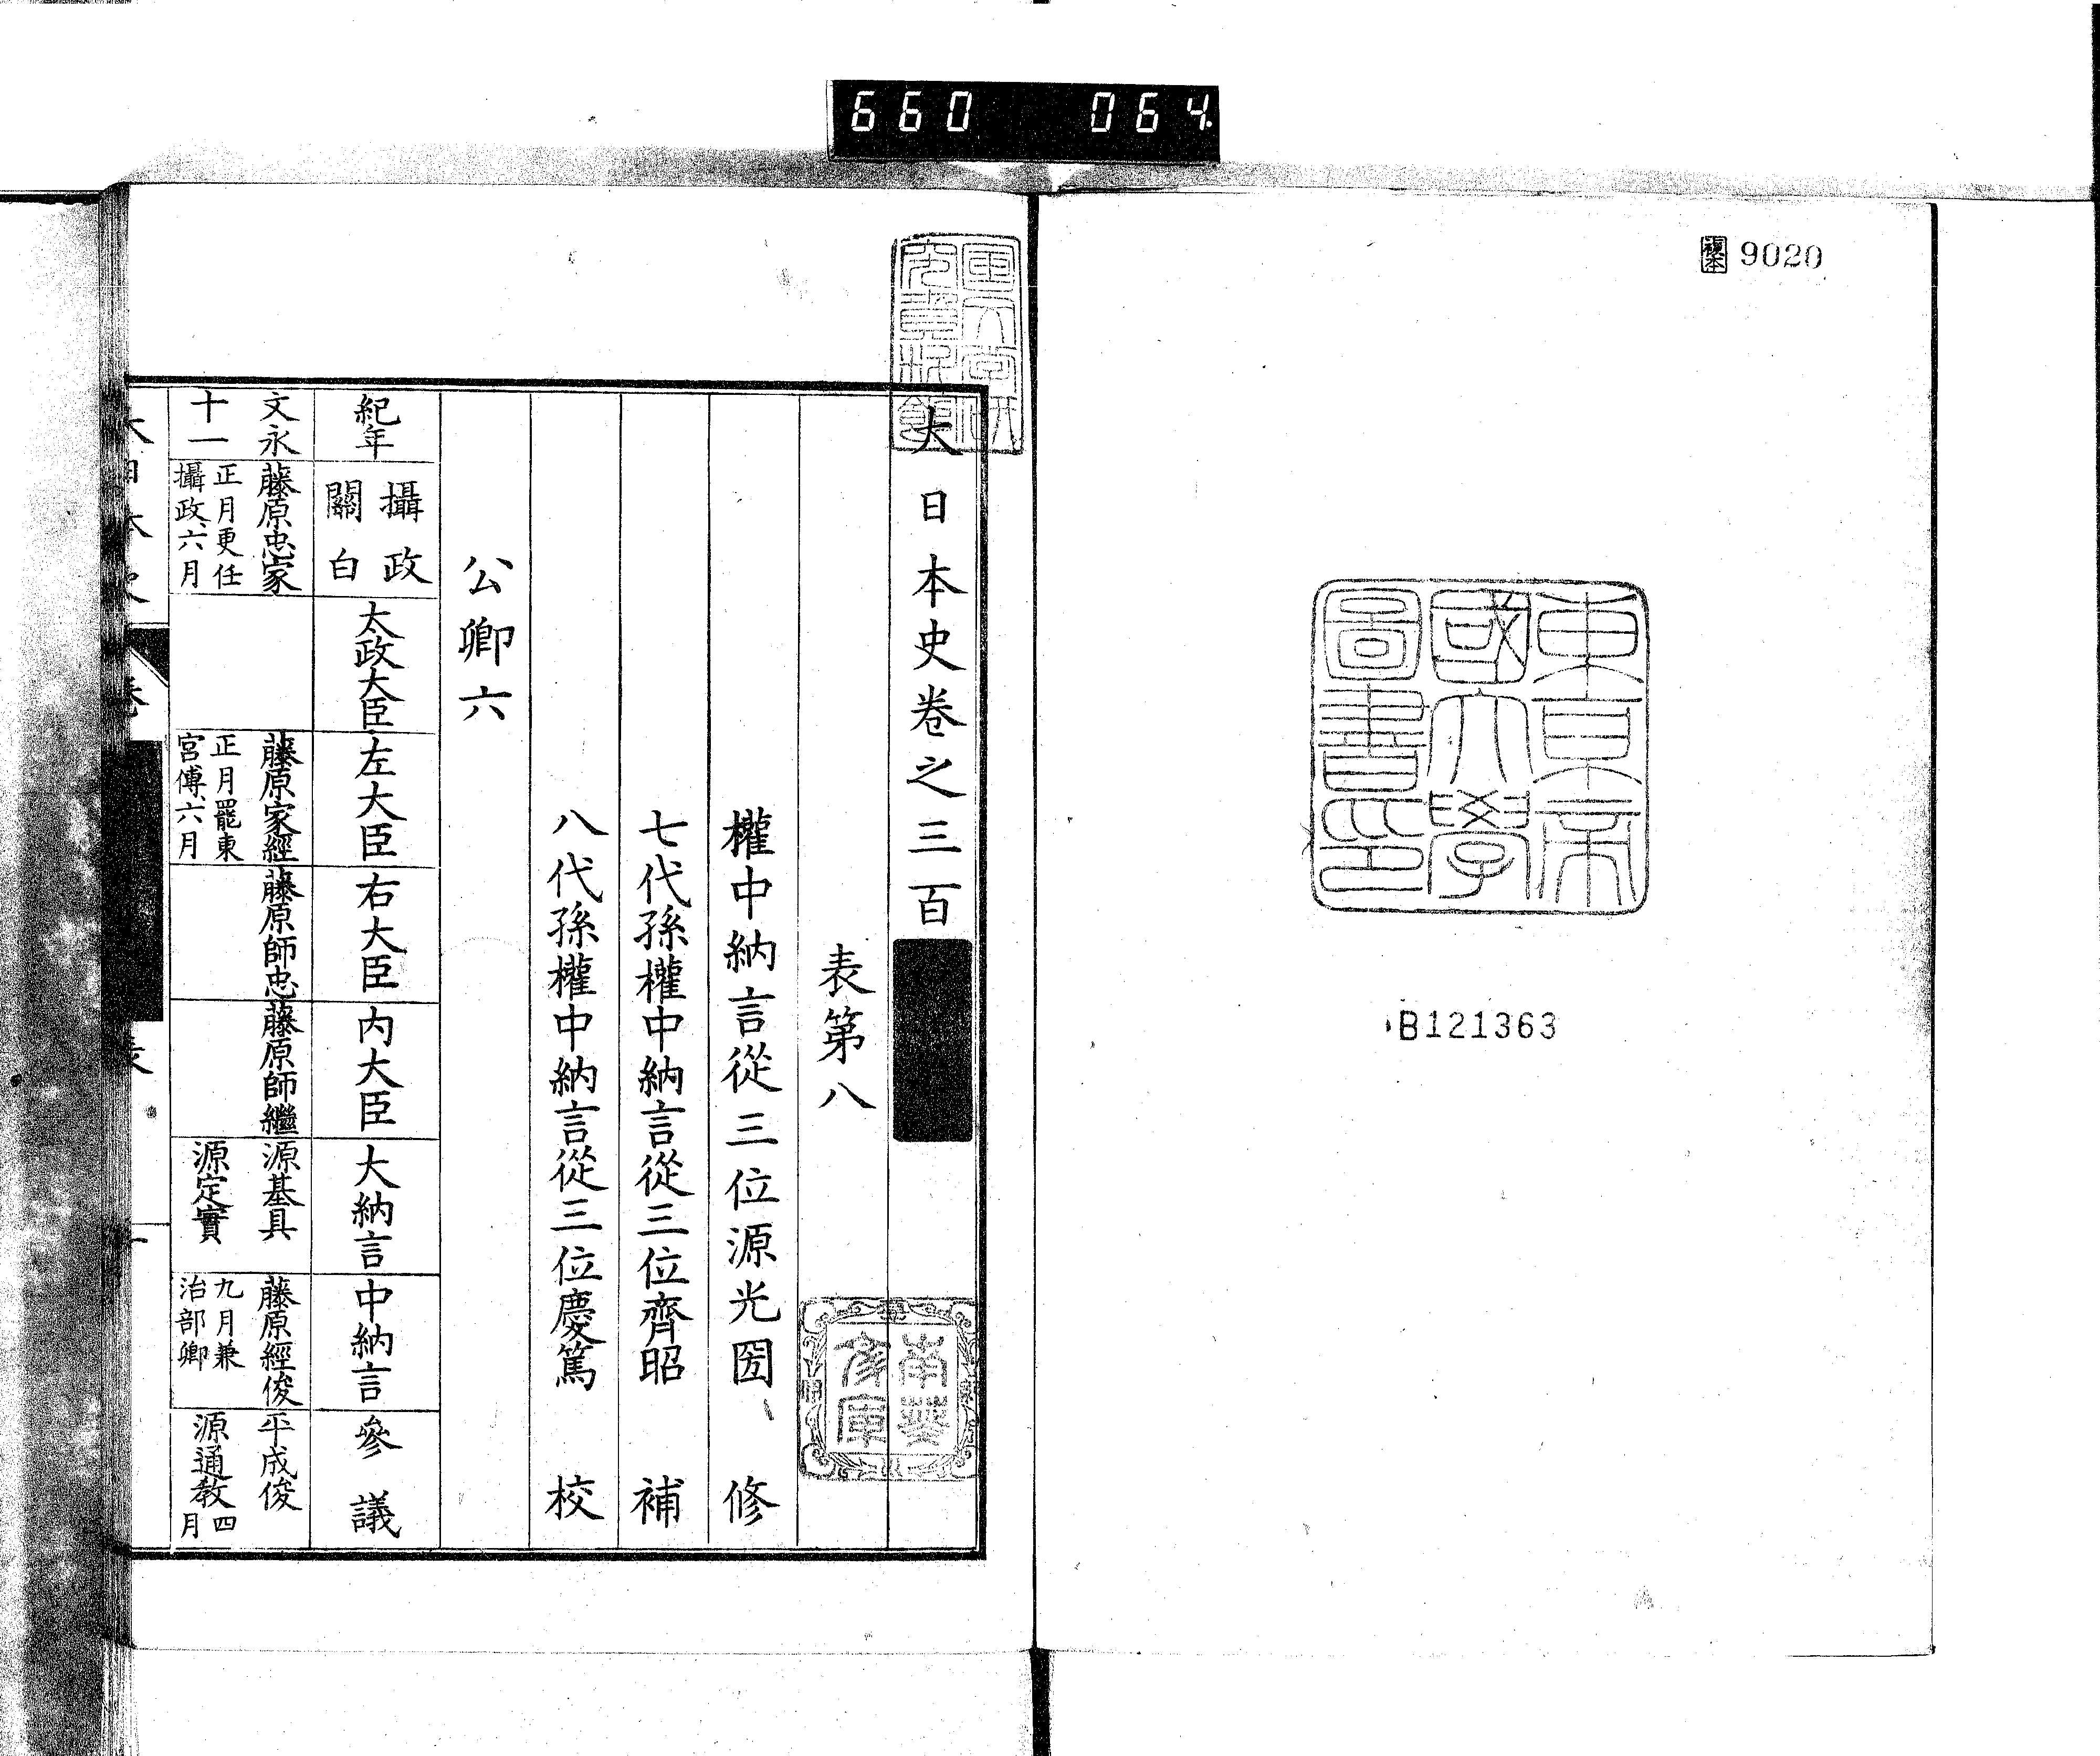 660 064
9020
東京帝
國大學
圖書印
B121363
大日本史卷之三百
表第八
權中納言從三位源光圀 修
七代孫權中納言從三位齊昭 補
八代孫權中納言從三位慶篤 校
公卿六
紀年
攝政
關白
太政大臣
左大臣
右大臣
内大臣
大納言
中納言
參議
文永
十一
藤原忠家
正月更任
攝政、六月
藤原家經
正月罷東
宮傅、六月
藤原師忠
藤原師繼
源基具
源定實
藤原經俊
九月兼
治部卿
平成俊
源通教四
月